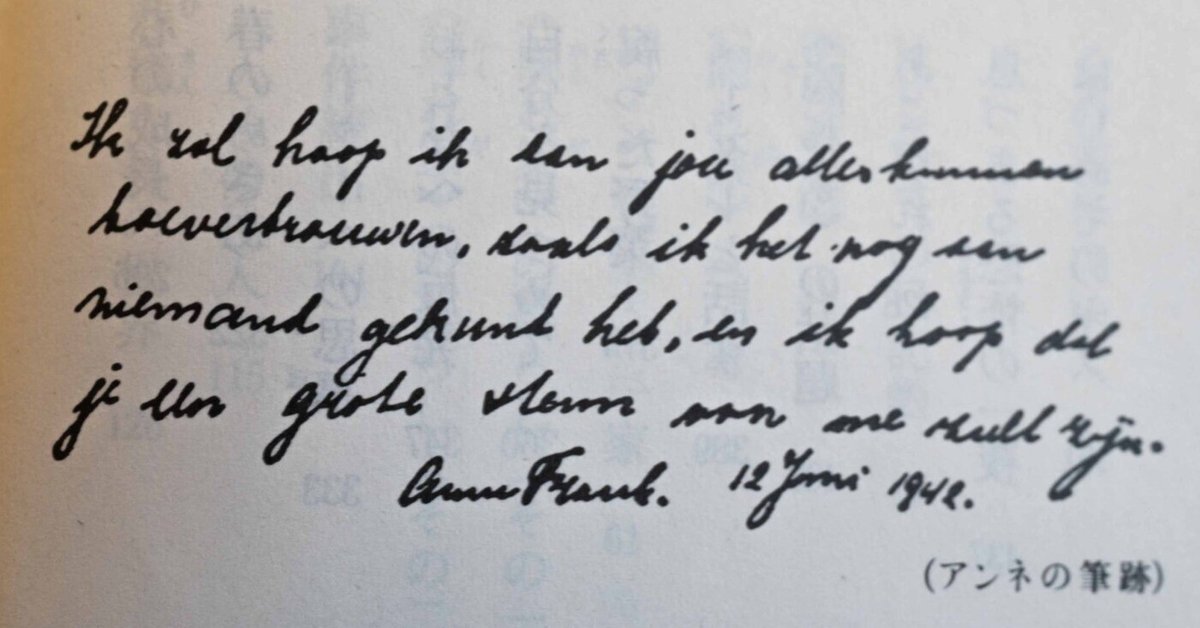 Ik zal hoop ik aan jou alles kunnen
toevertrouwen, zoals ik het nog aan
niemand gekund heb, en ik hoop dat
je een grote steun voor me zult zijn.
Anne Frank. 12 Juni 1942.
(アンネの筆跡)